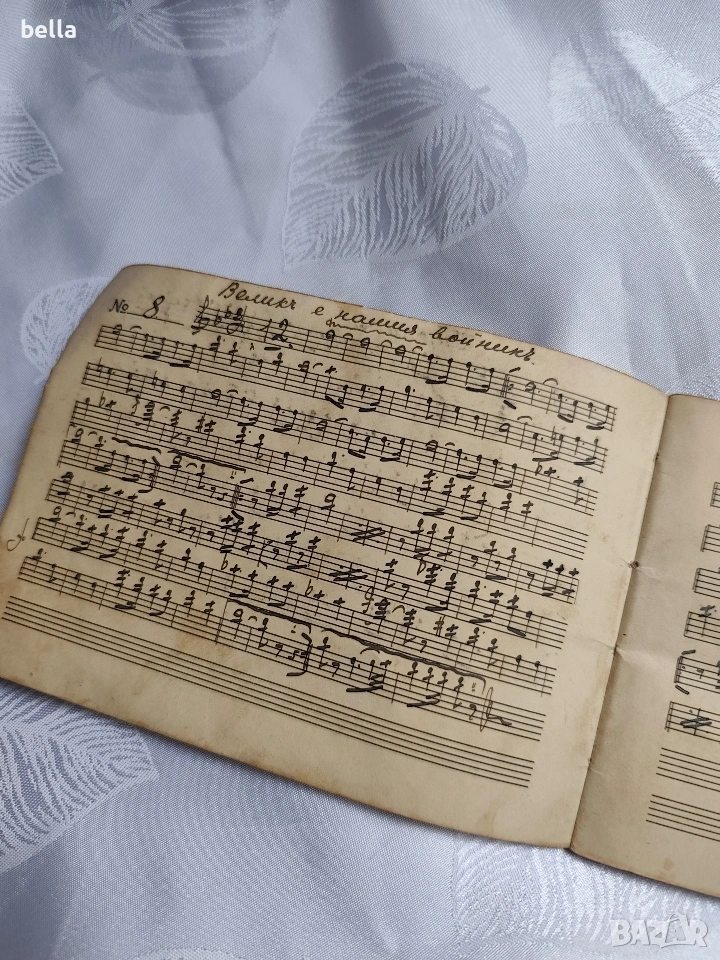 bella
№ 8 Великъ е нашия войникъ.
BAZAR